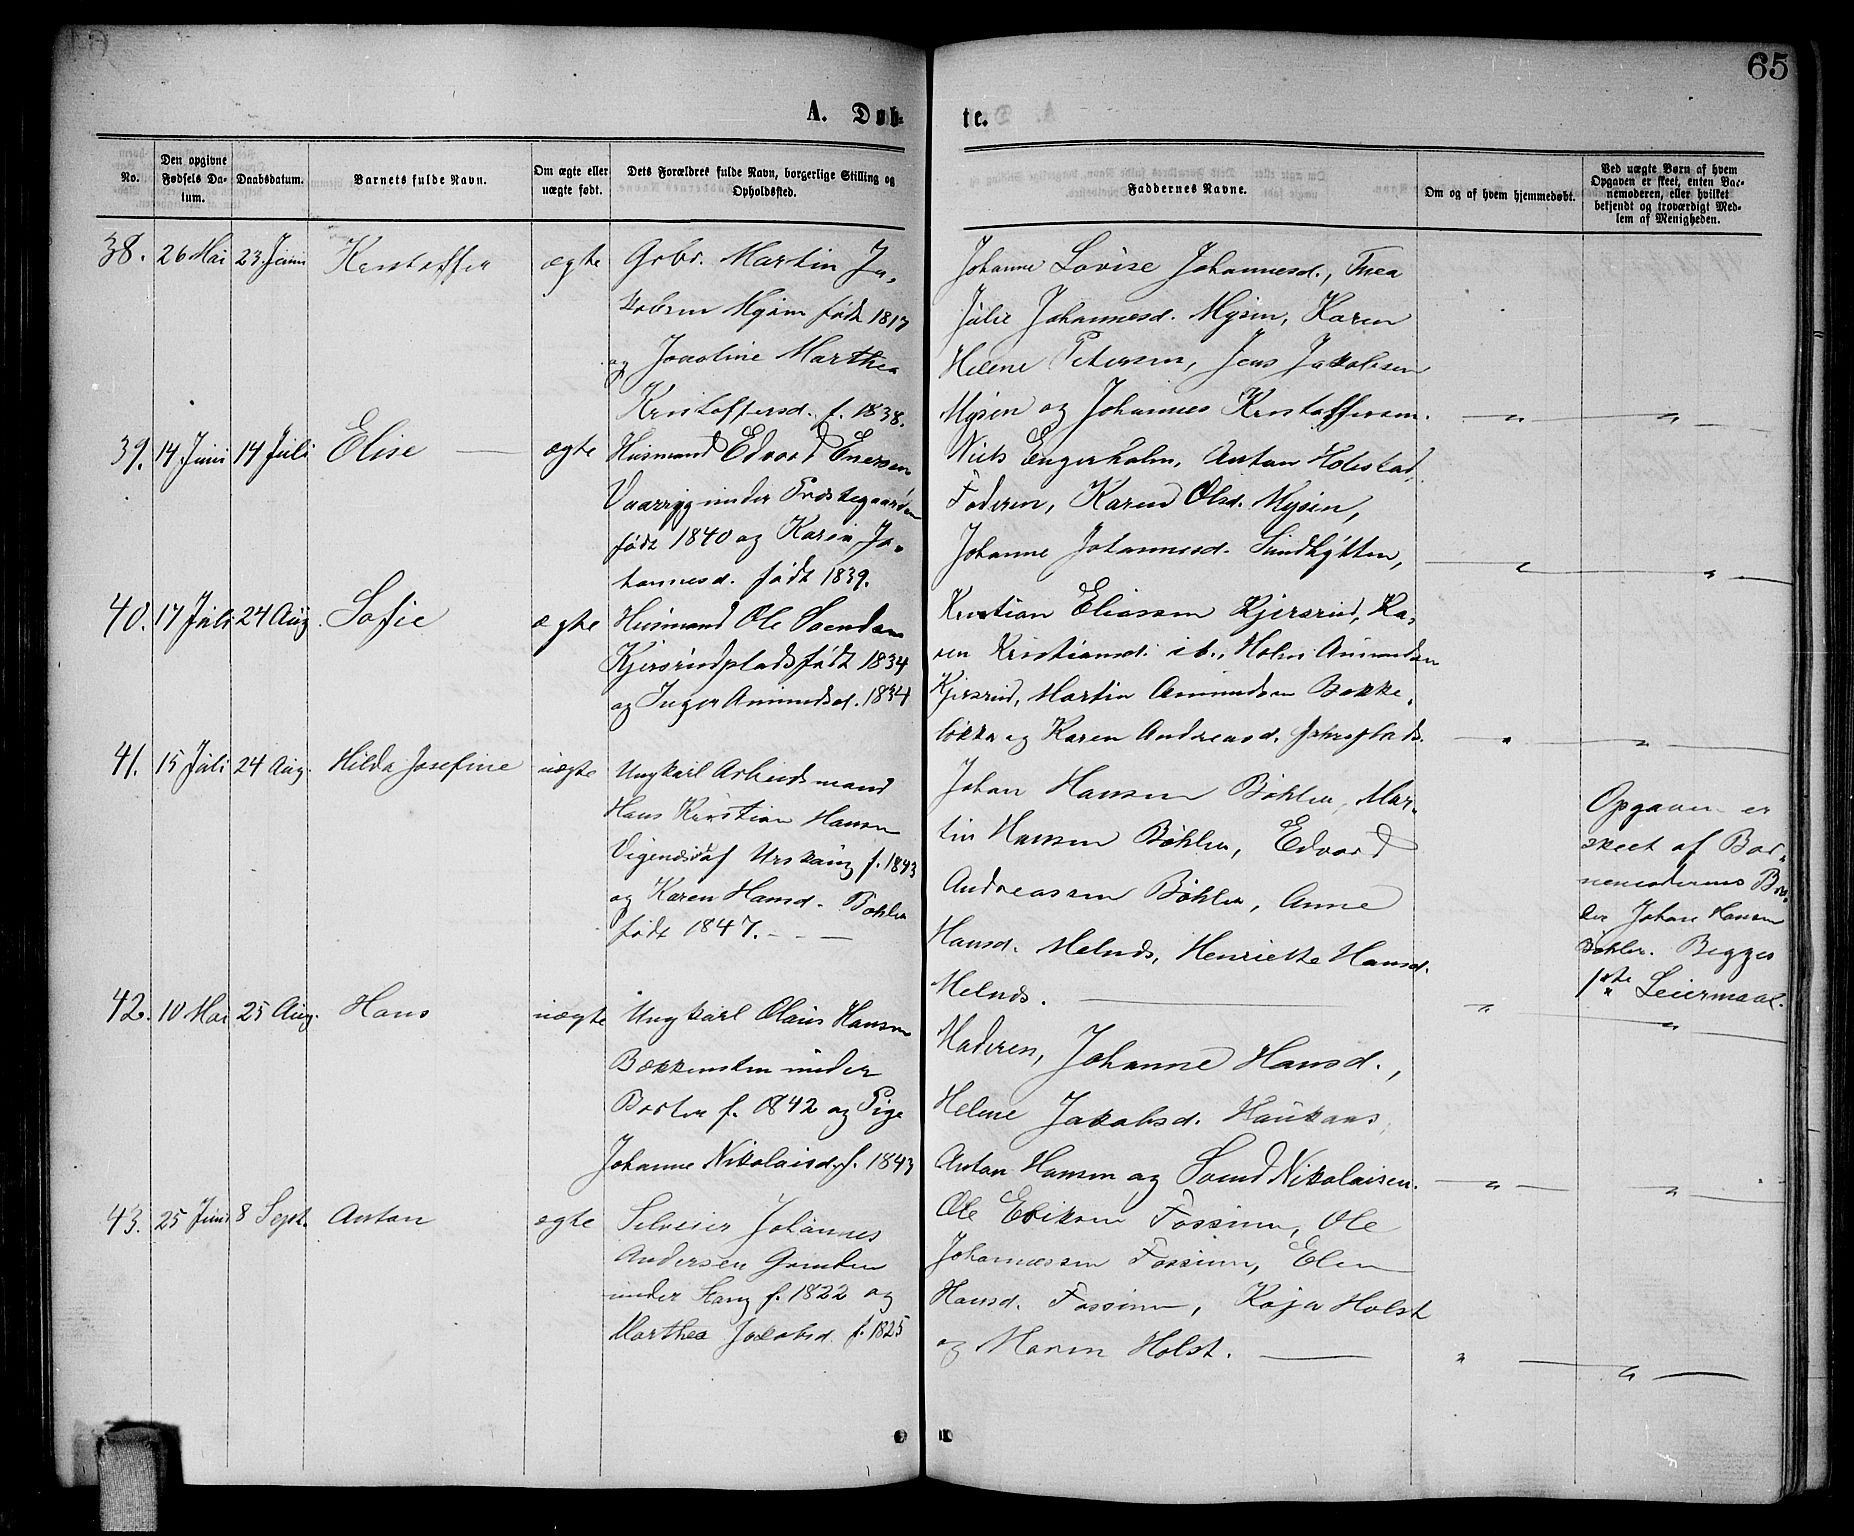 65
A. Døb-
te.
No.
Den opgivne
Fødsels Da-
tum.
Daabsdatum.
Barnets fulde Navn.
Om ægte eller
uægte født.
Dets Forældres fulde Navn, borgerlige Stilling og
Opholdssted.
Faddernes Navne.
Om og af hvem hjemmedøbt.
Ved uægte Børn af hvem
Opgaven er skeet, enten Bar-
nemoderen, eller hvilket
bekjendt og troværdigt Med-
lem af Menigheden.
38. 26 Mai 23 Juni Kristoffer ægte
Grbr. Martin Ja-
kobsen Mysen født 1817
og Marthea
Kristoffersd. f. 1838.
Johanne Lovise Johannesd., Thea
Julie Johannesd. Mysen, Karen
Helene Petersen, Jens Jakobsen
Mysen og Johannes Kristoffersen.
39. 14 Juni 14 Juli Elise ægte
Husmand Edvard Enersen
under Præstegaarden
født 1840 og Karen Jo-
hannesd. født 1839.
Niels Engerholm, Anton Holestad,
Faderen, Karen Olsd. Mysen,
Johanne Johannesd. Sundhytten,
40. 17 Juli 24 Aug. Sofie ægte
Husmand Ole Svendsen
Kjersrudplads født 1834
og Inger Amundsd. 1834
Kristian Eliassen Kjersrud, Ka-
ren Kristiansd. ib., Amundsen
Kjersrud, Martin Amundsen Bække-
løkka og Karen Andreasd.
41. 15 Juli 24 Aug. Hilda Josefine uægte
Ungkarl Arbeidsmand
Hans Kristian Hansen
af Urskoug f. 1843
og Karen Hansd. Bøhler
født 1847.
Johan Hansen Bøhler, Mar-
tin Hansen Bøhler, Edvard
Andreassen Bøhler, Anne
Hansd. Melnds, Henriette Hansd.
Melnds.
Opgaven er
skeet af Bar-
nemoderens Bro-
der Johan Hansen
Bøhler. Begges
1ste Leiermaal.
42. 10 Mai 25 Aug. Hans uægte
Ungkarl Olaus Hansen
Bækkensten under
f. 1842 og Pige
Johanne Nikolaisd. f. 1843
Moderen, Johanne Hansd.,
Helene Jakobsd. Haukaas,
Anton Hansen og Svend Nikolaisen.
43. 25 Juni 8 Sept. Anton ægte
Selveier Johannes
Andersen
under Stang f. 1822 og
Marthea Jakobsd. f. 1825
Ole Eriksen Fossum, Ole
Johannessen Fossum, Elen
Hansd. Fossum, Kaja Holst
og Maren Holst.